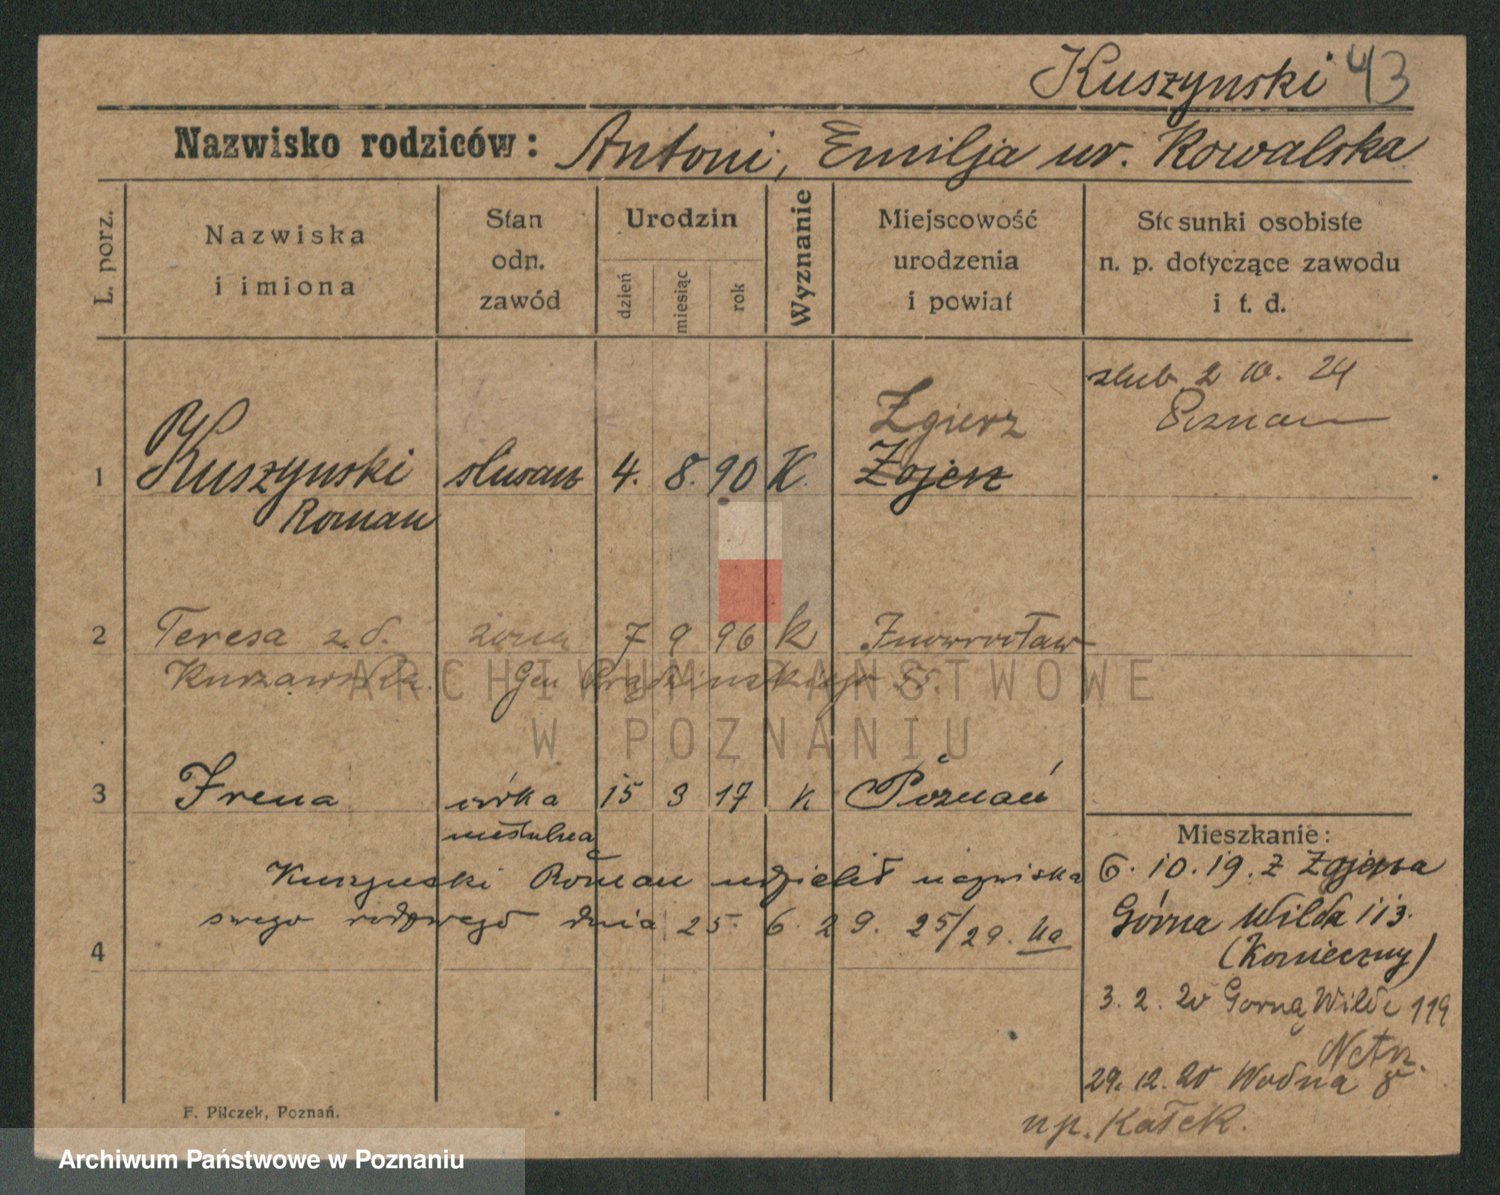 Kuszynski 43
Nazwisko rodziców: Antoni, Emilja ur. Kowalska
L. porz.
Nazwiska
i imiona
Stan
odn.
zawód
Urodzin
dzień
miesiąc
rok
Wyznanie
Miejscowość
urodzenia
i powiat
Stosunki osobiste
n. p. dotyczące zawodu
i t. d.
ślub 2 10. 24
Poznań
Zgierz
1 Kuszynski ślusarz 4. 8. 90 K. Zgierz
Roman
2 Teresa z d. żona 7 9 96 k Inowrocław
Kurzawska Gen. Prądzińskiego
3 Irena córka 15 3 17 k Poznań
nieślubna
Kuszynski Roman udzielił nazwiska
swego rodowego dnia 25. 6. 29. 25/29.
4
Mieszkanie:
6. 10. 19. z Zgierza
Górna Wilda 113.
(Konieczny)
3. 2. 20 Górna Wilda 119
29. 12. 20 Wodna 8
np. Kałek.
F. Pilczek, Poznań.
ARCHIWUM PAŃSTWOWE
W POZNANIU
Archiwum Państwowe w Poznaniu